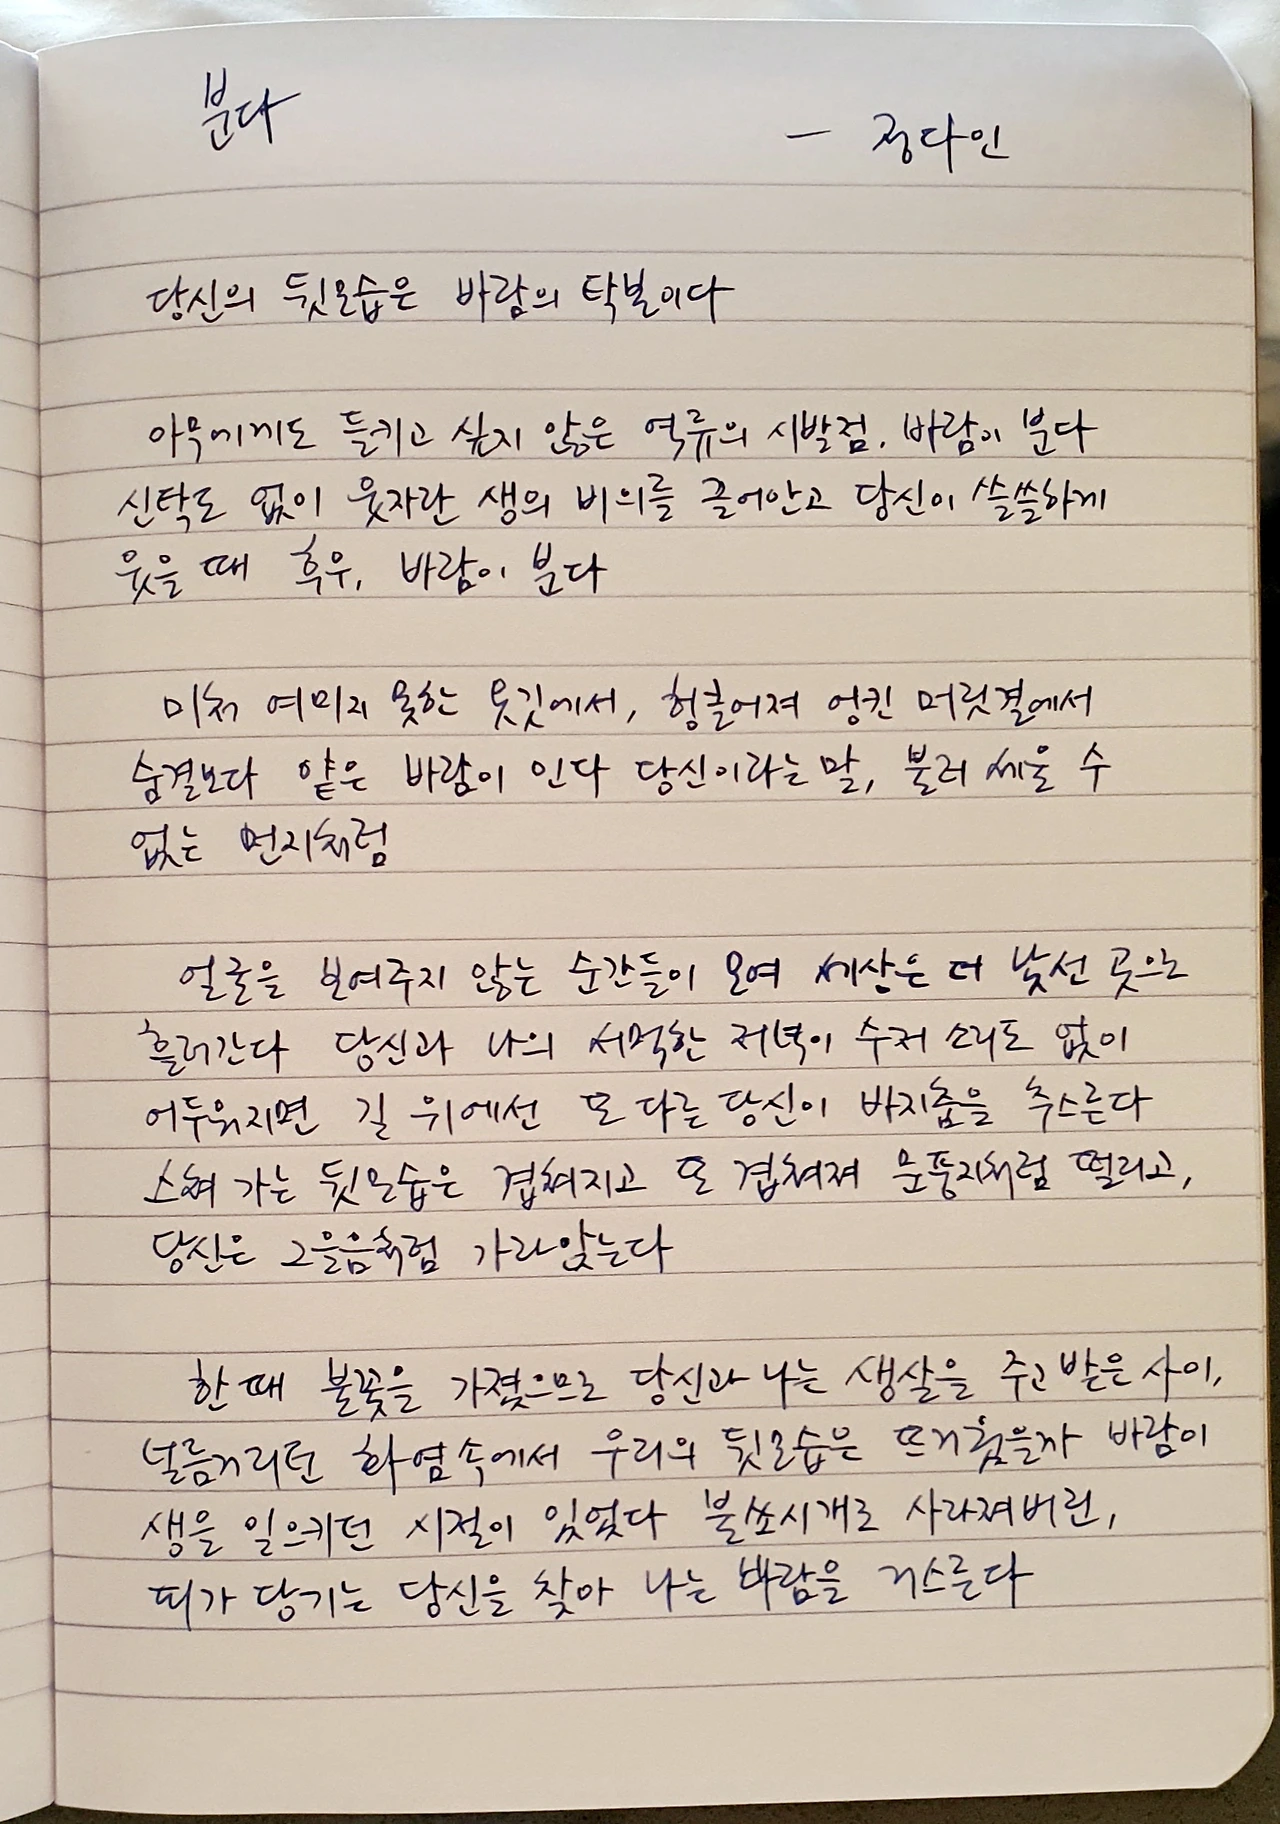 분다
— 정다인
당신의 뒷모습은 바람의 탁본이다
아무에게도 들키고 싶지 않은 역류의 시발점. 바람이 분다
신탁도 없이 웃자란 생의 비의를 끌어안고 당신이 쓸쓸하게
웃을 때 훅우, 바람이 분다
미처 여미지 못한 옷깃에서, 헝클어져 엉킨 머릿결에서
숨결보다 얕은 바람이 인다 당신이라는 말, 불러 세울 수
없는 먼지처럼
얼굴을 보여주지 않는 순간들이 모여 세상은 더 낯선 곳으로
흘러간다 당신과 나의 서먹한 저녁이 수저 소리도 없이
어두워지면 길 위에선 또 다른 당신이 바지춤을 추스른다
스쳐 가는 뒷모습은 겹쳐지고 또 겹쳐져 문풍지처럼 떨리고,
당신은 그을음처럼 가라앉는다
한때 불꽃을 가졌으므로 당신과 나는 생살을 주고 받은 사이,
널름거리던 화염속에서 우리의 뒷모습은 뜨거웠을까 바람이
생을 일으키던 시절이 있었다 불쏘시개로 사라져버린,
띠가 당기는 당신을 찾아 나는 바람을 거스른다